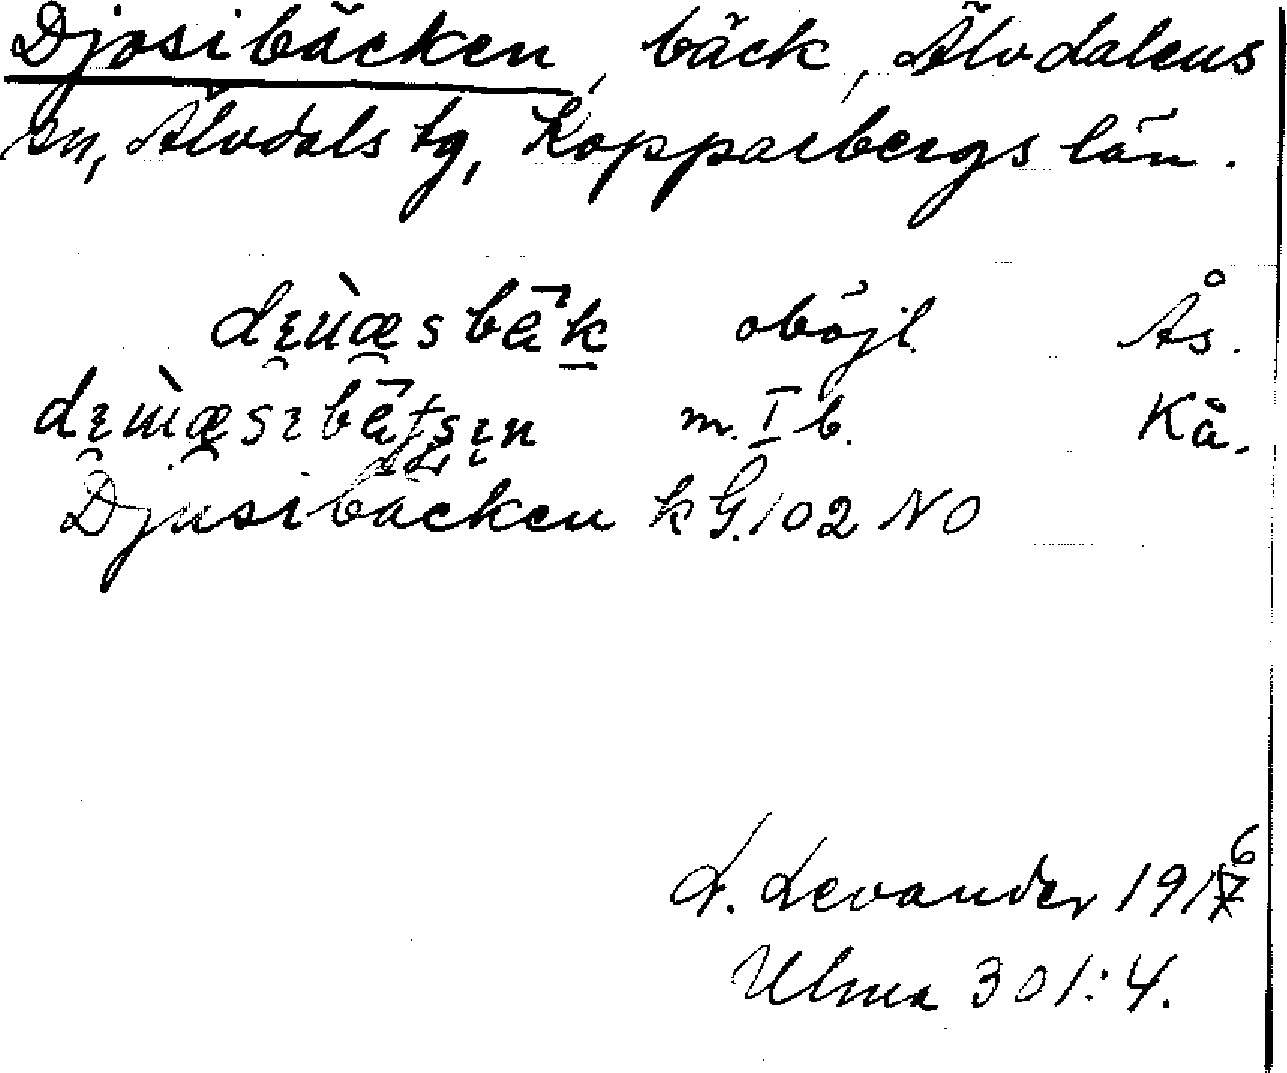 Djosibäcken, bäck, Älvdalens
sn, Älvdals tg, Kopparbergs län.
oböjl. Ås.
m. I b. Kå.
Djusibäcken k G.102 NO
L. Levander 1916
Ulma 301:4.